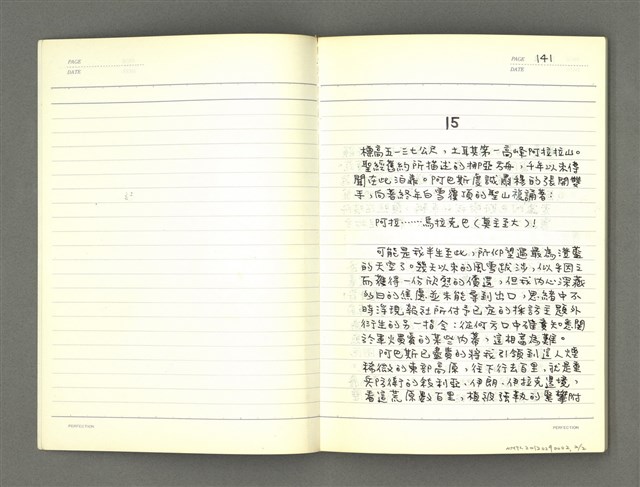 PAGE
DATE
PERFECTION
PAGE 141
DATE
15
標高五一三七公尺，土耳其第一高峰阿拉拉山。
聖經舊約所描述的挪亞方舟，千年以來傳
聞在此泊靠。阿巴斯虔誠肅穆的張開雙
手，向著終年白雪覆頂的聖山複誦著：
阿拉……馬拉克巴（真主至大）！
可能是我半生至此，所仰望過最為澄藍
的天空了。幾天以來的風雪跋涉，似乎因之
而獲得一份欣慰的償還，但我內心深藏
的目的焦慮並未能尋到出口，思緒中不
時浮現報社所付予已定的採訪主題外
衍生的另一指令：從何方口中確實知悉關
於軍火買賣的某些內幕，這相當為難。
阿巴斯已盡責的將我引領到這人煙
稀微的東部高原，往下行去百里，就是重
兵防衛的敘利亞、伊朗、伊拉克邊境，
看這荒原數百里，植被強韌的攀附
PERFECTION